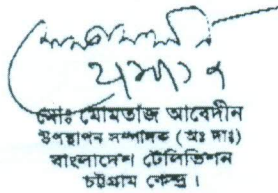 মোঃ মোমতাজ আবেদীন
উপস্থাপন সম্পাদক (অঃ দাঃ)
বাংলাদেশ টেলিভিশন
চট্টগ্রাম কেন্দ্র।